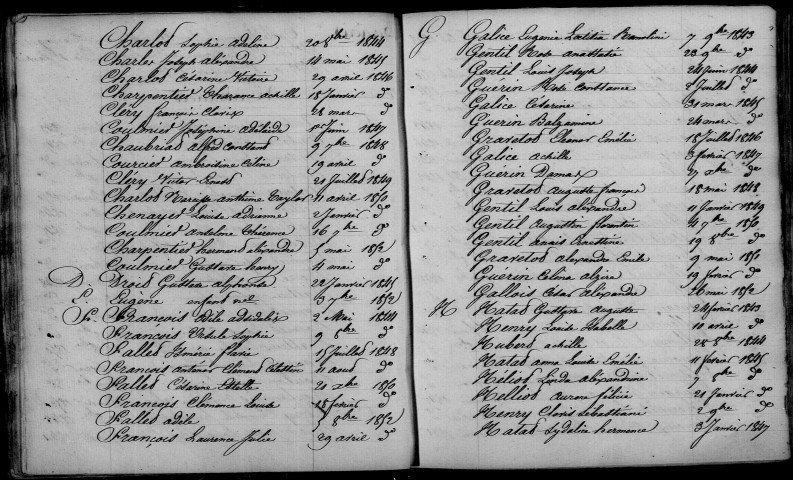 Charlod Sophie Adeline 20 8bre 1844
Charles Joseph Alexandre 14 mai 1845
Charlod Césarine Victoire 29 avril 1846
Charpentier Achille 18 Janvier do
Cléry François Clovis 28 mars do
Coulmier Joséphine Adélaide 1er Juin 1847
Chaubriad Alfred Constant 9 7bre 1848
Courcier Ambroisine Céline 19 avril do
Cléry Victor Ernest 21 Juillet 1849
Charlod Narcisse Anthime 11 avril 1850
Chenayer Louise Adrienne 2 Janvier do
Coulmier 16 7bre do
Charpentier Alexandre 5 mai 1852
Coulmier Gustave henry 4 mai do
D. Droid Gustave Alphonse 28 Janvier 1845
E. Eugène enfant nel 3 7bre 1852
F. François 2 Mai 1844
François Sophie 9 8bre do
Falles flavie 15 Juillet 1848
François Clémend 11 aoud do
Falles Césarine 21 xbre 1850
François Clémence Louise 18 fevrier do
Falled adèle 5 8bre 1852
François Laurence Julie 29 avril do
G Galice Eugenie Latitia 7 9bre 1843
Gentil Rose 28 9bre do
Gentil Louis Joseph 24 Juin 1844
Guerin Rose Constance 2 Juillet do
Galice Césarine 31 mars 1845
Guerin Balzamine 24 mars do
Gravetod Eleonor Emélie 18 Juillet 1846
Galice Achille 3 fevrier 1847
Guerin Damas 27 xbre do
Gravetod Auguste françois 18 mai 1848
Gentil Louis Alexandre 11 Janvier 1849
Gentil Augustin florentin 4 7bre 1850
Gentil Anais Ernestine 19 8bre do
Gravetod Alexandre Emile 9 mai 1851
Guérin Celina 19 fevrier do
Gallois César Alexandre 26 mai 1852
H Hatad Gustave Auguste 24 fevrier 1843
Henry Louise Isabelle 10 avril do
Huberd achille 28 8bre 1844
Hatad anne Louise Emélie 11 fevrier 1845
Heliod Linda Alexandrine 7 8bre do
Helliod Aurore félicie 21 Janvier do
Henry Cloris 2 9bre do
Hatad Lydalise hermence 3 Janvier 1847